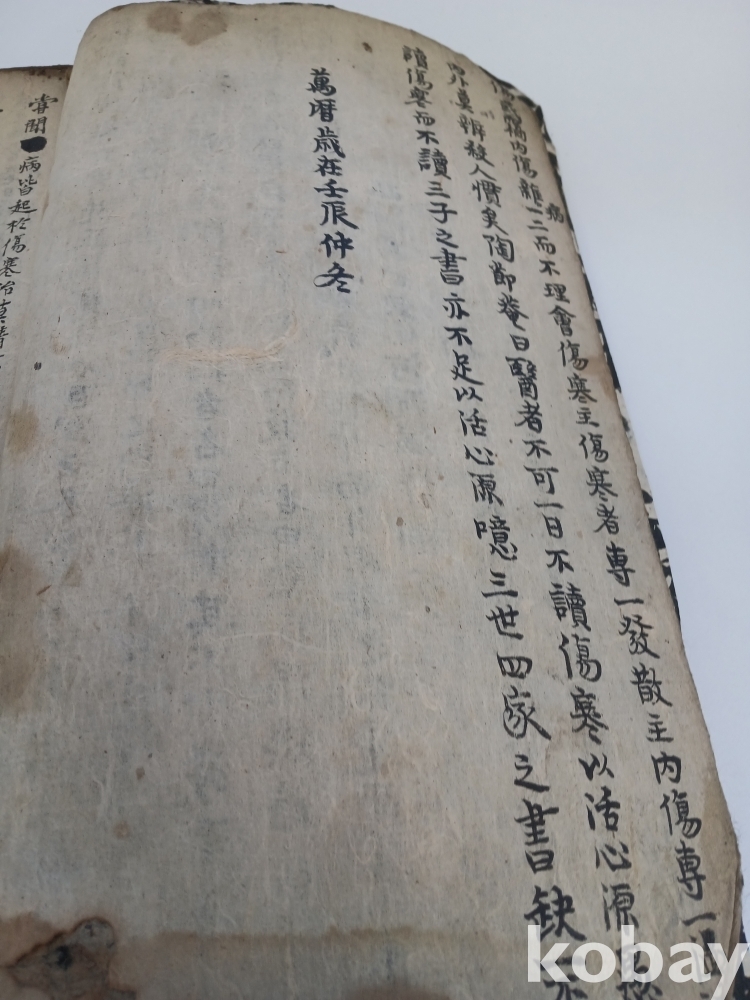 內傷雜一二而不理會傷寒主傷寒者專一發散主內傷專一
病
辨殺人慣矣陶節菴曰醫者不可一日不讀傷寒以活心源
讀傷寒而不讀三子之書亦不足以活心源噫三世四家之書缺
萬曆歲在壬辰仲冬
嘗聞
病皆起於傷寒治
kobay